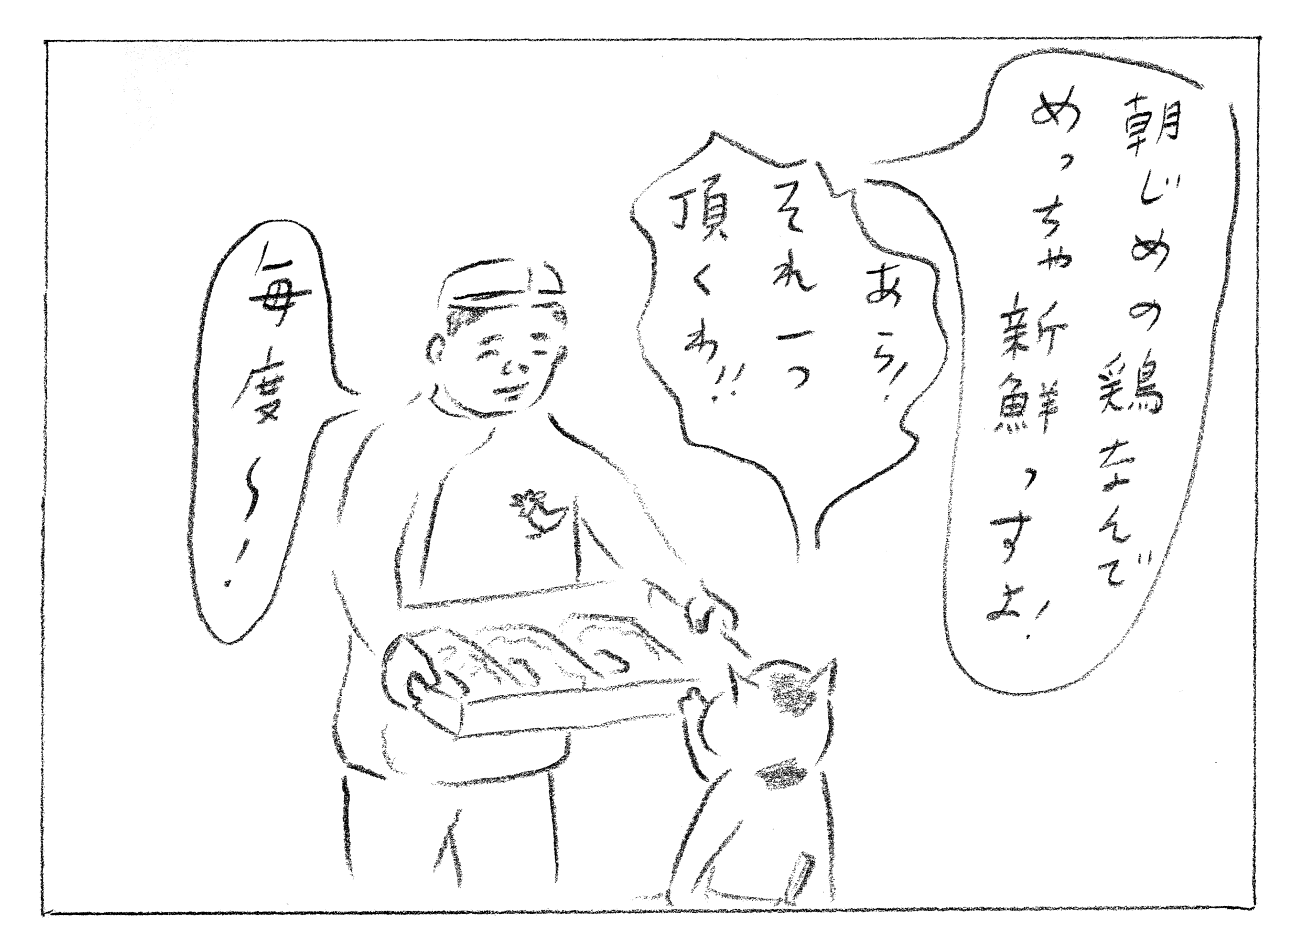 朝じめの鶏なんで
めっちゃ新鮮っすよ!
あら!
それ一つ
頂くわ!!
毎度〜!